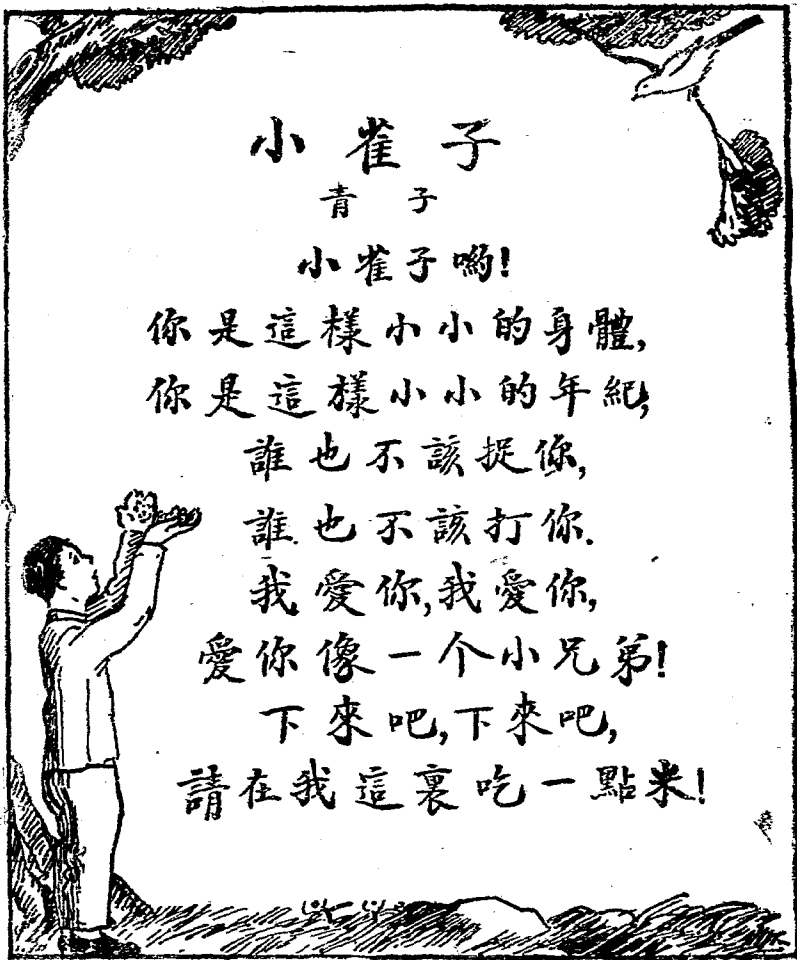 小雀子
青子
小雀子喲!
你是這樣小小的身體,
你是這樣小小的年紀,
誰也不該捉你,
誰也不該打你.
我愛你,我愛你,
愛你像一个小兄弟!
下來吧,下來吧,
請在我這裏吃一點米!